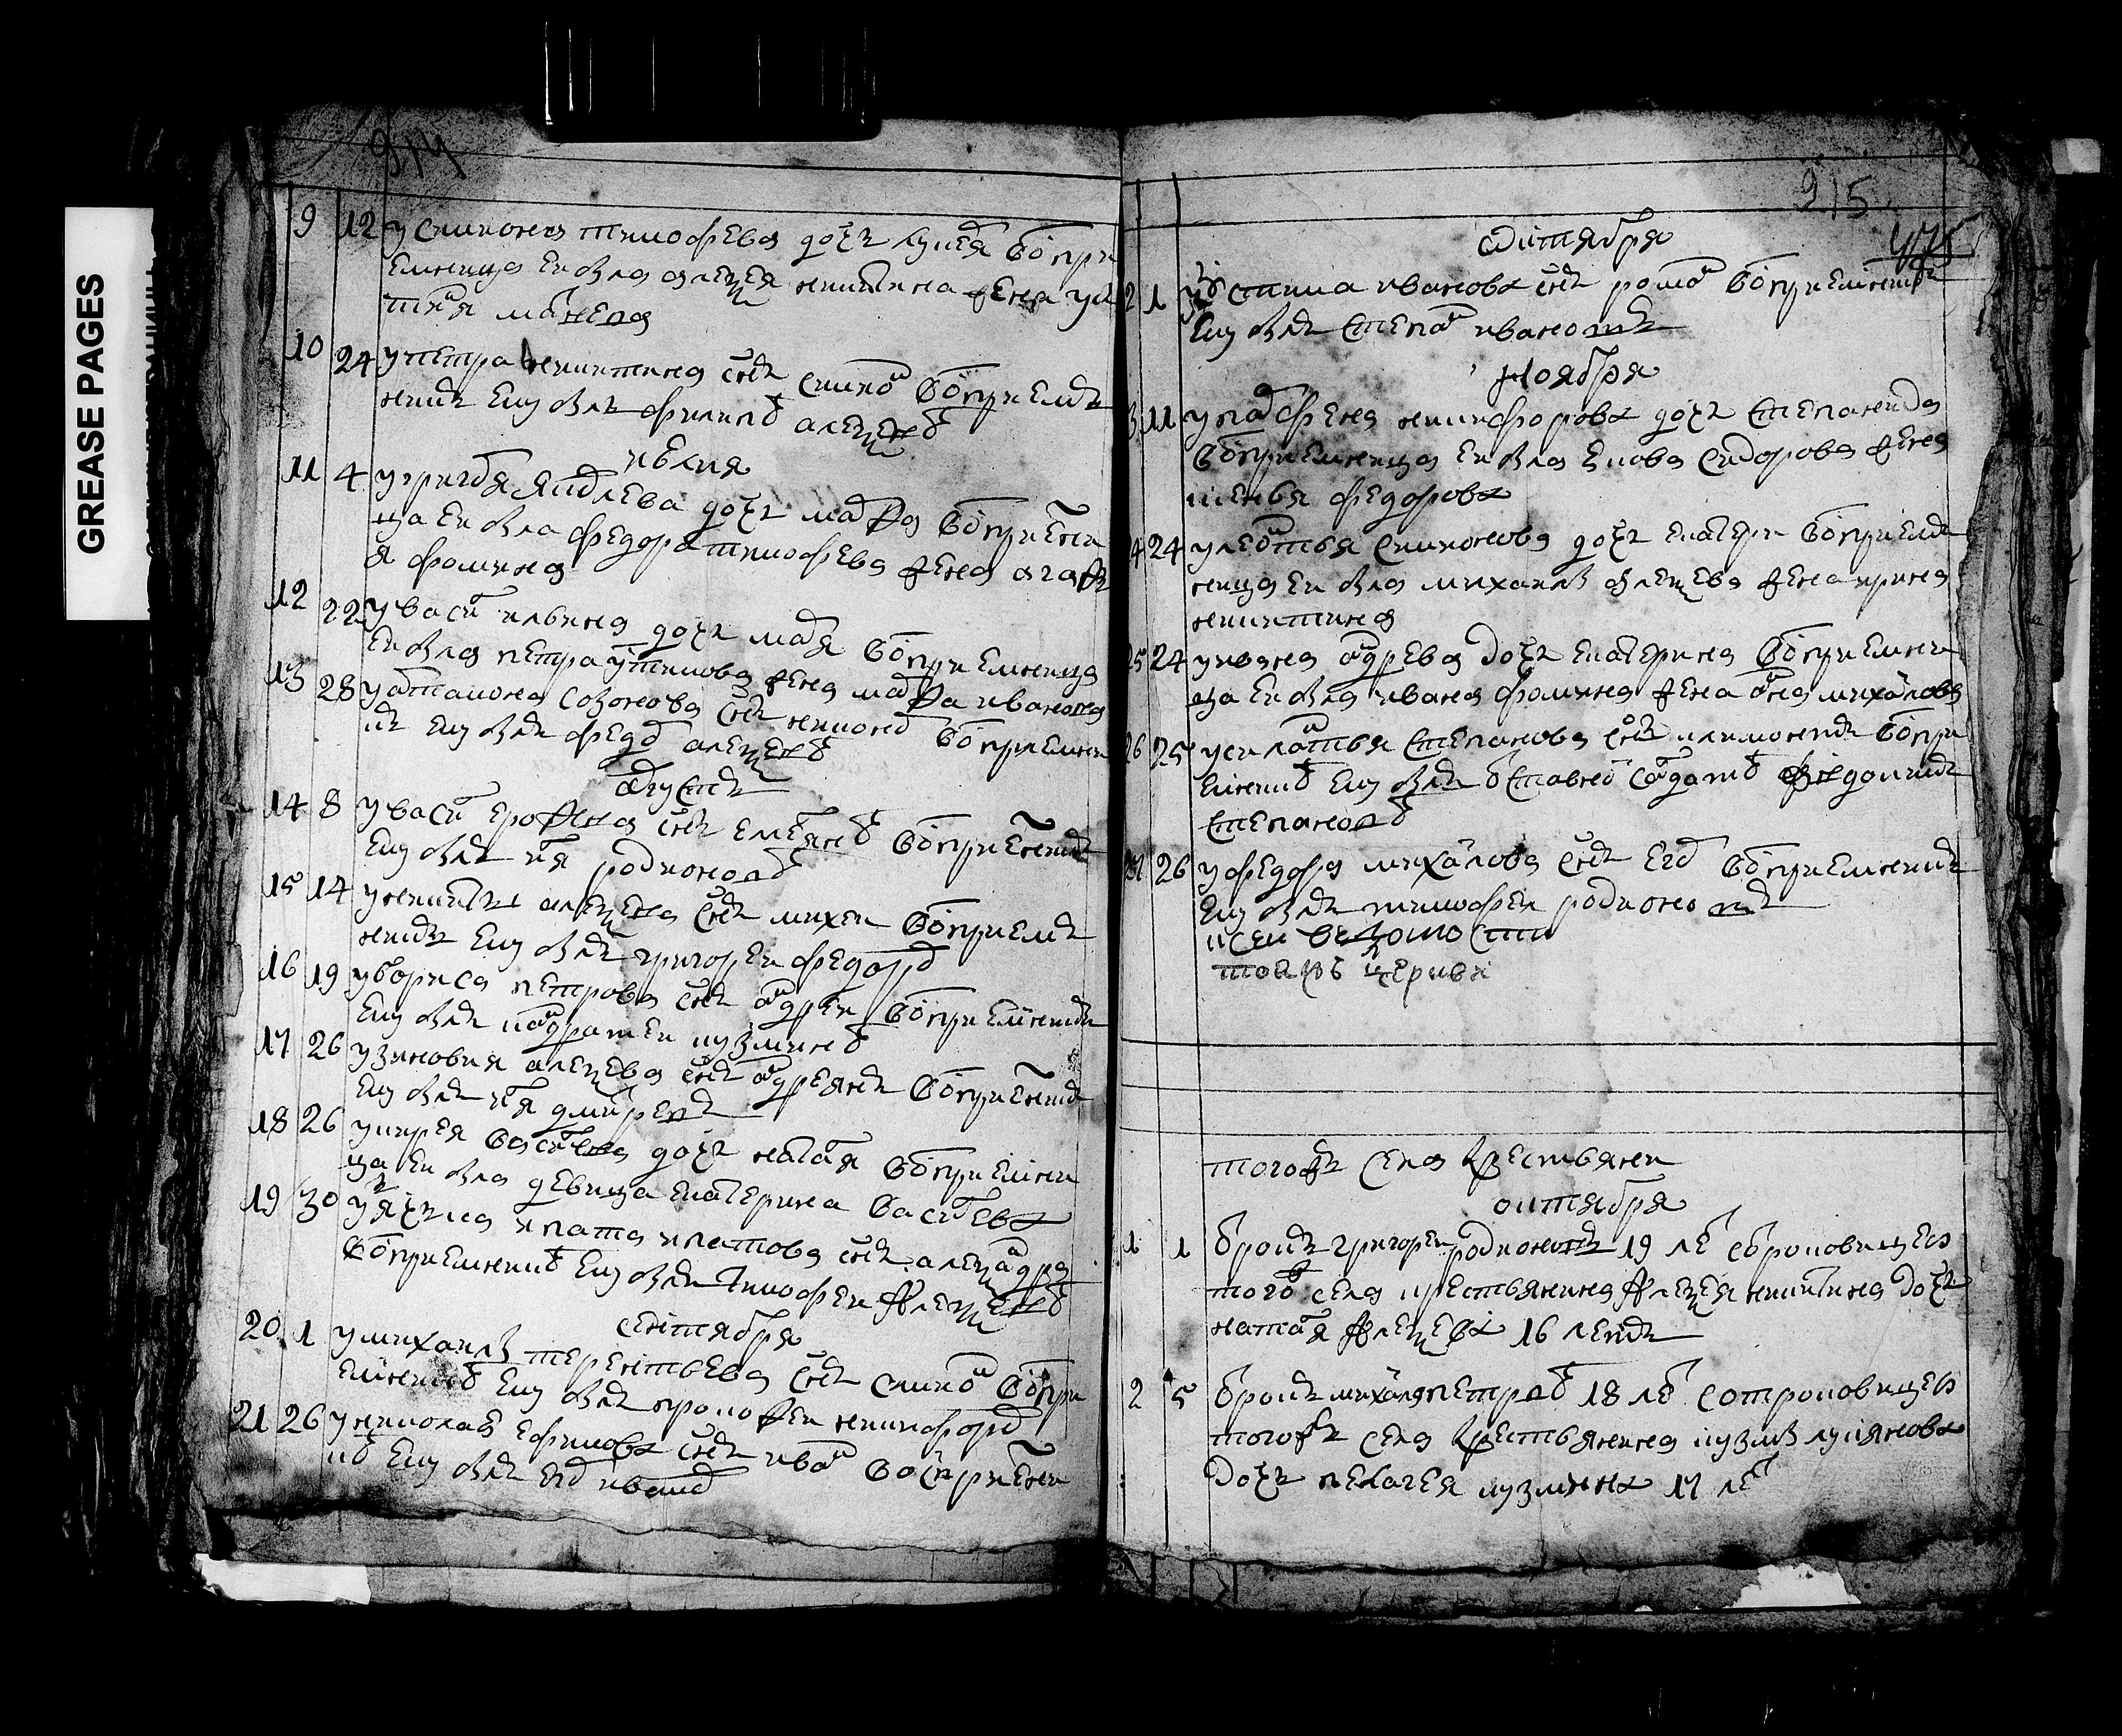 GREASE PAGES
914
9 12 у Симиона Тимофева дочь Лукея воспри
емница ей была Алексея Никитина жена Ус
тинья
10 24 у Петра Никитина снъ Симионъ восприем
никъ ему былъ Филипъ Алексеевъ
июля
11 4 у Григорья Яковлева дочь Марфа восприемни
ца ей была Федора Тимофева жена Агафь
я Фомина
12 22 у Василья Ильина дочь Марья восприемница
ей была Петра жена Марфа Иванова
13 28 у Артамона Созонова снъ Никонъ восприемни
къ ему былъ Федоръ Алексеевъ
августъ
14 8 у Василья Ерофеева снъ Емельянъ восприемникъ
ему былъ Илья Родионовъ
15 14 у Никиты Алексеева снъ Михей восприем
никъ ему былъ Григорей Федоровъ
16 19 у Бориса Петрова снъ Андрей восприемникъ
ему былъ Кондратей Кузминъ
17 26 у Зиновья Алексева снъ Андреянъ восприемникъ
ему былъ Илья
18 26 у Кирея Васильева дочь Наталья восприемни
ца ей была девица Екатерина Васильева
19 30 у Ипата Ипатова снъ Александра
восприемникъ ему былъ Тимофей Алексеевъ
сентября
20 1 у Михаила Терентьева снъ Симионъ воспри
емникъ ему былъ Прокофей Никифоровъ
21 26 у Николая Ефимова снъ Иванъ восприемни
къ ему былъ
915
475
октября
2 1 у Устина Иванова снъ Романъ восприемникъ
ему былъ Степанъ Ивановъ
ноября
3 11 у Парфена Никифорова дочь Степанида
восприемница ей была Сидорова жена
Федорова
4 24 у Леонтья Симионова дочь Екатерина восприем
ница ей была Михаила Алексева жена Ирина
Никитина
25 24 у Ивана Андрева дочь Екатерина восприемни
ца ей была Ивана Фомина жена Анна Михайлова
26 25 у Силантья Степанова снъ Филимонъ воспри
емникъ ему былъ отставной салдатъ
Степановъ
26 у Федора Михайлова снъ Егоръ восприемникъ
ему былъ Тимофей Родионовъ
к сей ведомости
церкви
тогожъ села крестьяне
октября
1 1 бракъ Григорей Родионовъ 19 летъ
того села крестьянина Алексея Никитина дочь
Наталья Алексева 16 летъ
2 5 бракъ Михаила Петровъ 18 летъ
тогожъ села крестьянина Кузмы Лукьянова
дочь Пелагея Кузмина 17 летъ